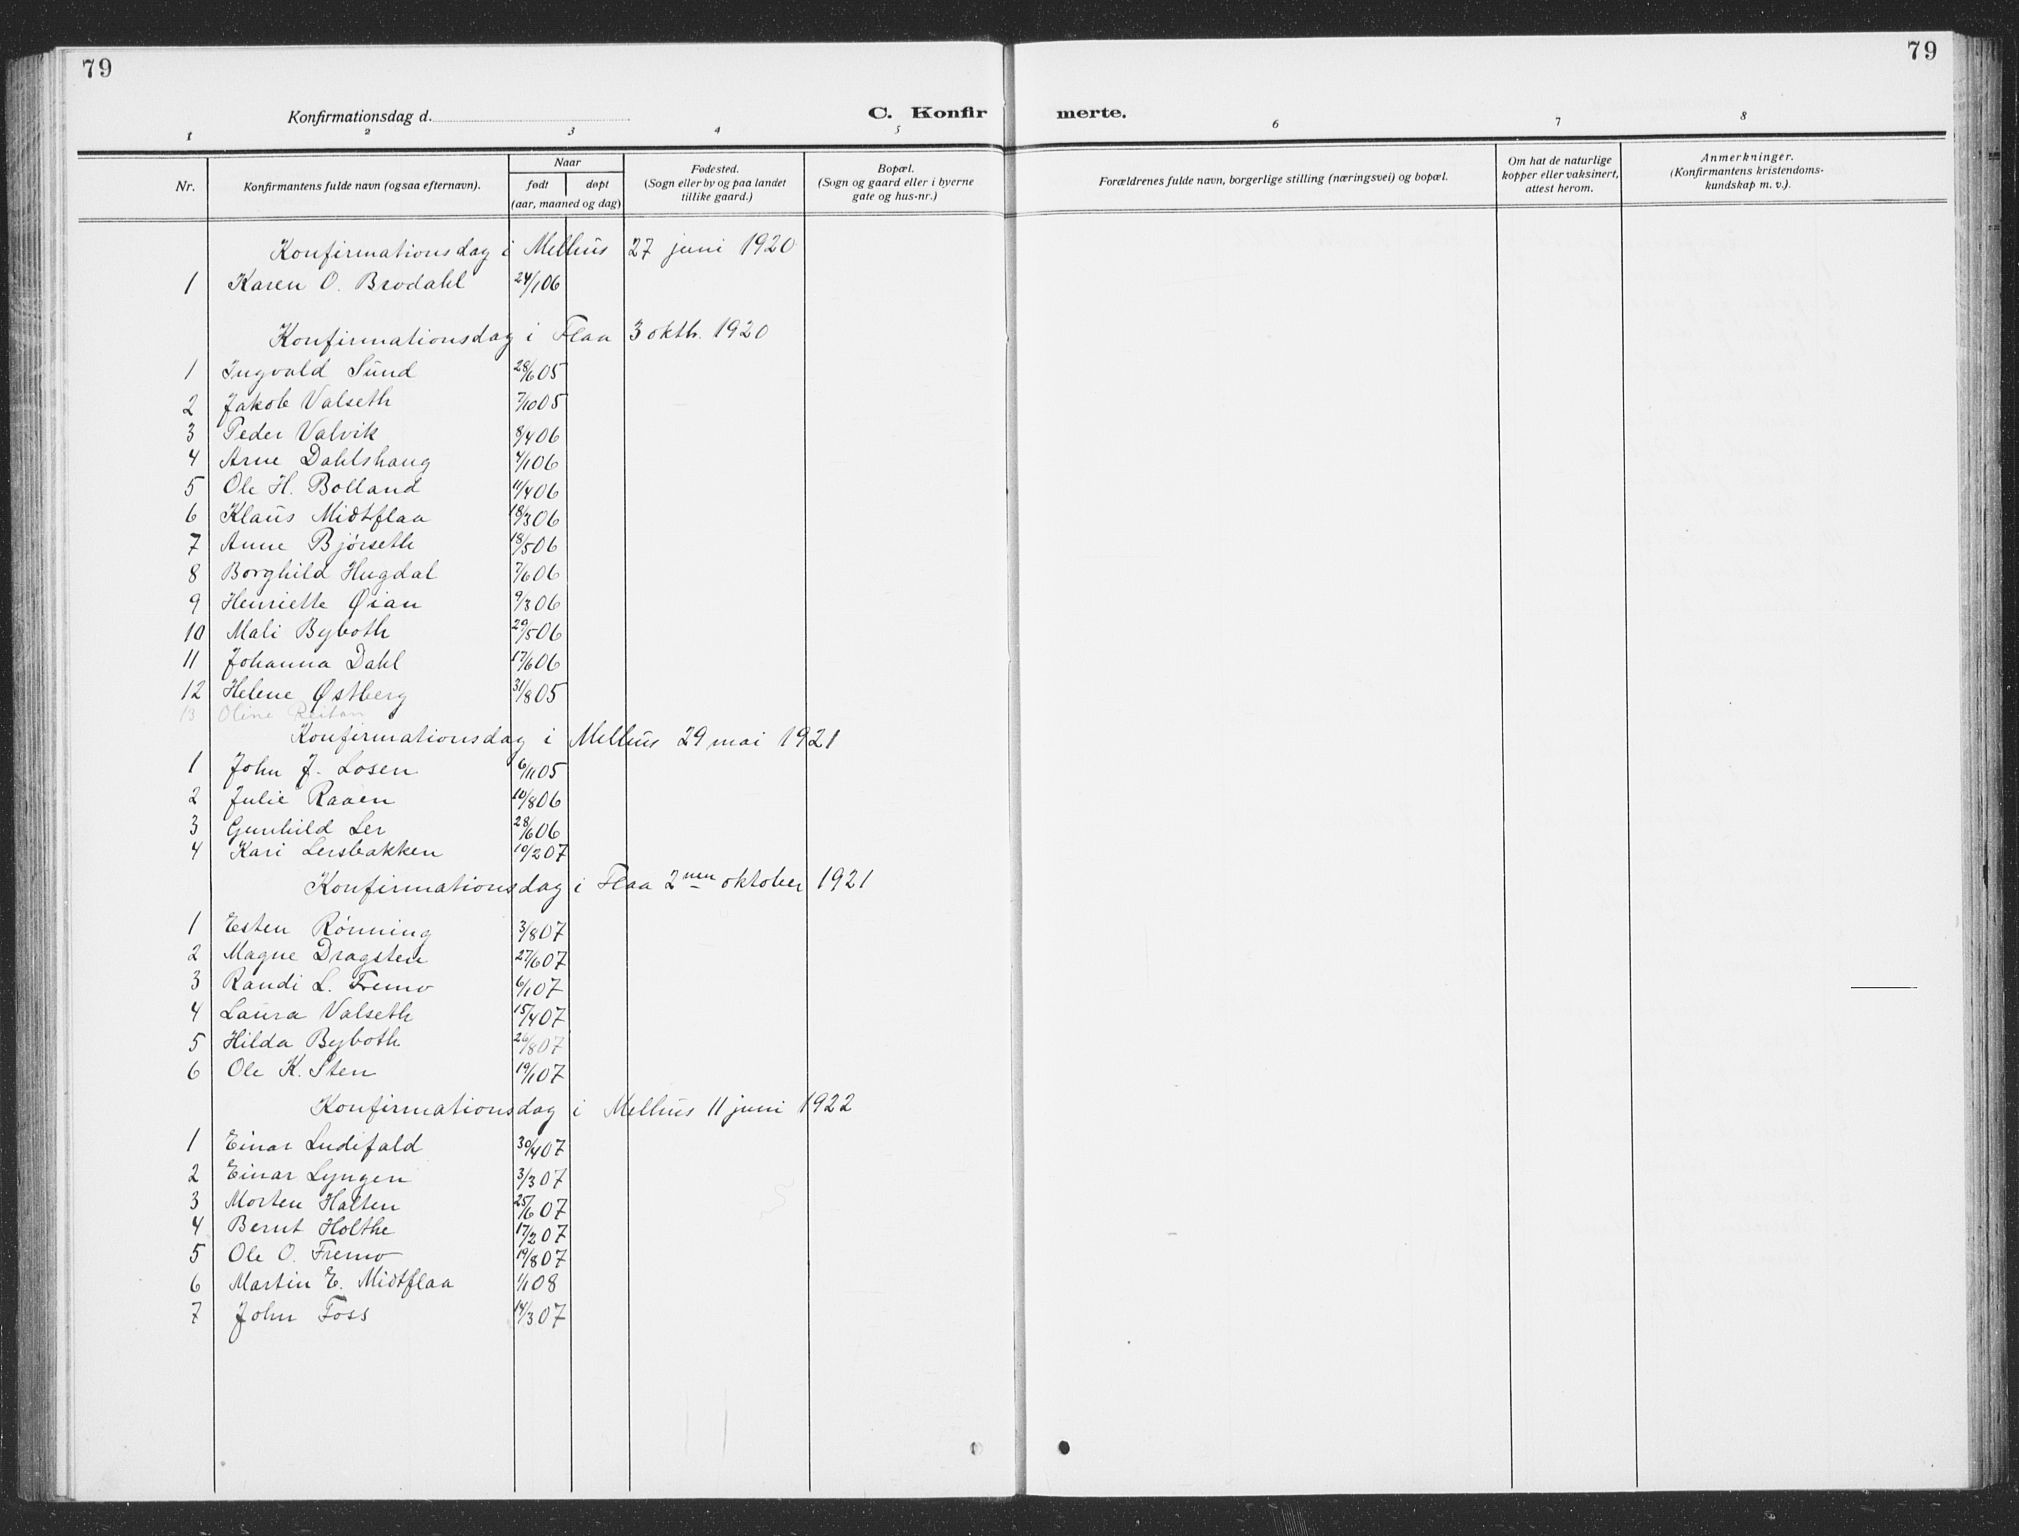 79
79
Konfirmationsdag d.
C. Konfirmerte.
1 2 3 4 5 6 7 8
Nr.
Konfirmantens fulde navn (ogsaa efternavn).
Naar
født døpt
(aar, maaned og dag)
Fødested.
(Sogn eller by og paa landet
tillike gaard.)
Bopæl.
(Sogn og gaard eller i byerne
gate og hus-nr.)
Forældrenes fulde navn, borgerlige stilling (næringsvei) og bopæl.
Om hat de naturlige
kopper eller vaksinert,
attest herom.
Anmerkninger.
(Konfirmantens kristendoms-
kundskap m. v.).
Konfirmationsdag i Melhus 27 juni 1920
1 Karen O. Brodahl 24/1 06
Konfirmationsdag i Flaa 3 oktb. 1920
1 Ingvald Sund 28/6 05
2 Jakob Valseth 7/10 05
3 Peder Valvik 8/4 06
4 Arne Dahlshaug 4/1 06
5 Ole H. Bolland 11/4 06
6 Klaus Midtflaa 18/3 06
7 Anne Bjørseth 18/5 06
8 Borghild Hugdal 7/6 06
9 Henriette Øian 9/3 06
10 Mali Byboth 29/5 06
11 Johanna Dahl 17/6 06
12 Helene Østberg 31/8 05
13 Oline Reitan
Konfirmationsdag i Melhus 29 mai 1921
1 John J. Losen 6/11 05
2 Julie Raaen 10/8 06
3 Gunhild Ler 28/6 06
4 Kari Lersbakken 10/2 07
Konfirmationsdag i Flaa 2nen oktober 1921
1 Esten Rønning 3/8 07
2 Magne Dragsten 27/6 07
3 Randi L. Fremo 6/1 07
4 Laura Valseth 15/4 07
5 Hilda Byboth 26/8 07
6 Ole K. Sten 19/1 07
Konfirmationsdag i Melhus 11 juni 1922
1 Einar Ludifald 30/4 07
2 Einar Lyngen 3/3 07
3 Morten Halten 25/6 07
4 Bernt Holthe 17/2 07
5 Ole O. Fremo 19/8 07
6 Martin E. Midtflaa 1/1 08
7 John Foss 14/3 07